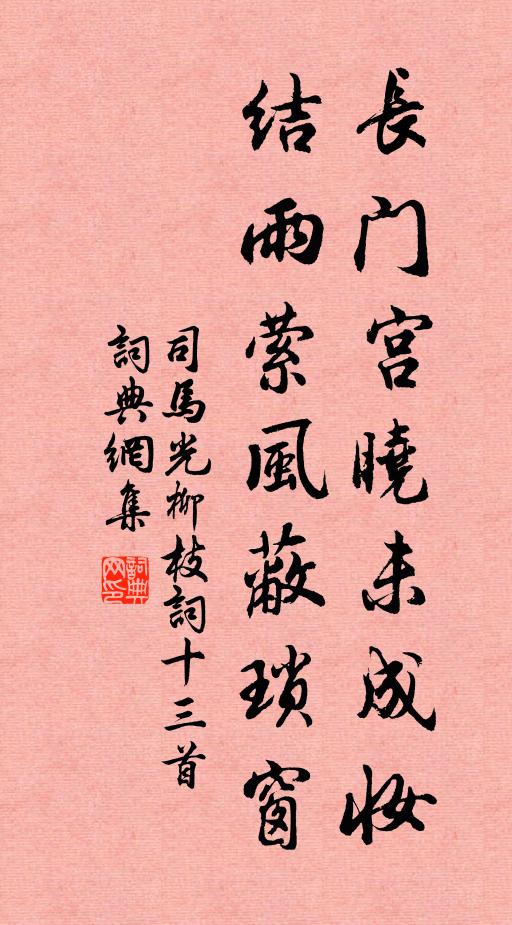 長门宫曉未成妝
結雨萦風蔽瑣窗
司馬光柳枝詞十三首
詞典網集
詞典网印